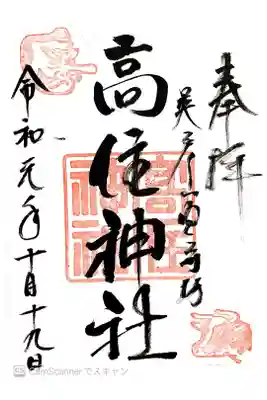 奉拝
英彦山豊前坊
高住神社
令和元年十月十九日
CamScanner でスキャン